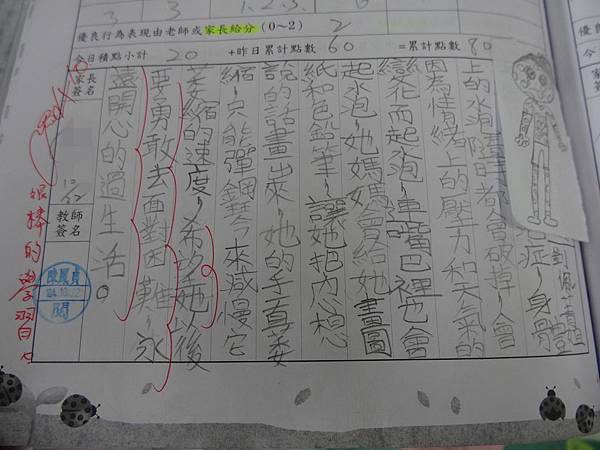 優良行為表現由老師或家長給分(0~2) 2
今日積點小計 20 +昨日累計點數 60 =累計點數 80
家長簽名
10/22
教師簽名
症,身體
上的水泡隨時都會破掉,會
因為情緒上的壓力和天氣的
變化而起水泡,連嘴巴裡也會
起水泡,她媽媽會給她畫圖
紙和色鉛筆,讓她把內心想
說的話畫出來,她的手一直萎
縮,只能彈鋼琴來減慢它
萎縮的速度,希望她以後
要勇敢去面對困難,永
遠開心的過生活。
很棒的學習